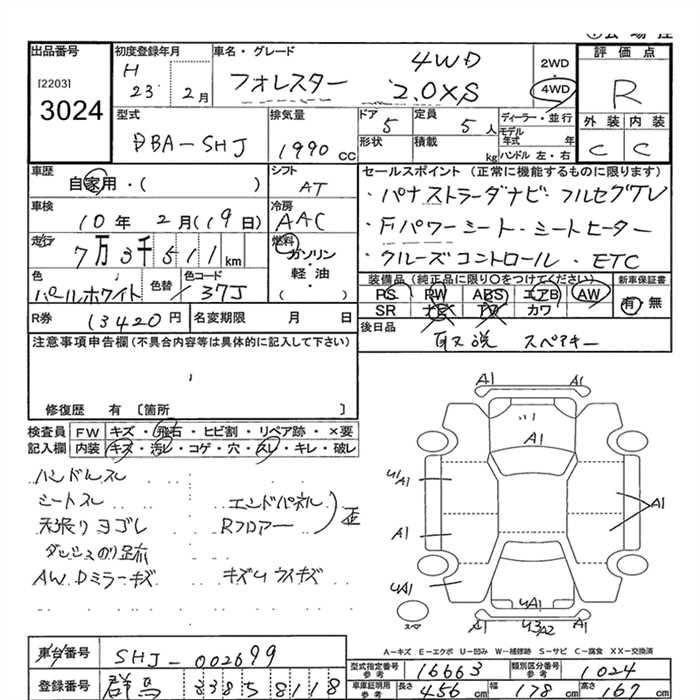 出品番号
[2203]
3024
初度登録年月
H
23 2月
車名・グレード
4WD
フォレスター 2.0XS
2WD
4WD
評価点
R
外装 内装
C C
型式
DBA-SHJ
排気量
1990 CC
ドア
5
定員
5人
形状
積載
kg
ディーラー・並行
モデル
年式 年
ハンドル 左・右
車歴
自家用・( )
シフト
AT
車検
10年 2月(19日)
冷房
AAC
走行
7万3千511 km
燃料
ガソリン
軽・油
( )
色
パールホワイト
色替
色コード
37J
R券
13420円
名変期限 月 日
セールスポイント (正常に機能するものに限ります)
・パナストラーダナビ・フルセグTV
・Fパワーシート・シートヒーター
・クルーズコントロール・ETC
装備品(純正品に限り○をつけてください)
新車保証書
PS PW ABS エアB AW
SR ナビ TV カワ
有 無
後日品
取説 スペアキー
注意事項申告欄(不具合内容等は具体的に記入して下さい)
修復歴 有 [箇所 ]
検査員 FW キズ・飛石・ヒビ割・リペア跡・×要
記入欄 内装 キズ・汚レ・コゲ・穴・スレ・キレ・破レ
ハンドルスレ
シートスレ
天張りヨゴレ
エンドパネル
Rフロアー
歪
AW、Dミラーキズ
キズUウイキズ
A1 A1
A1
UA1
A1
A1
UA1
UA1
A1
U3A2
A1
スペア
A-キズ E-エクボ U-凹み W-補修跡 S-サビ C-腐食 XX-交換済
車台番号
SHJ-002699
登録番号
群馬 338 5 8118
型式指定番号
参考
16663
類別区分番号
参考
1024
車庫証明用
参考
長さ 456 cm
幅 178 cm
高さ 167 cm